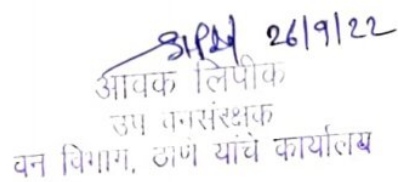 26/9/22
आवक लिपीक
उप वनसंरक्षक
वन विभाग, ठाणे यांचे कार्यालय